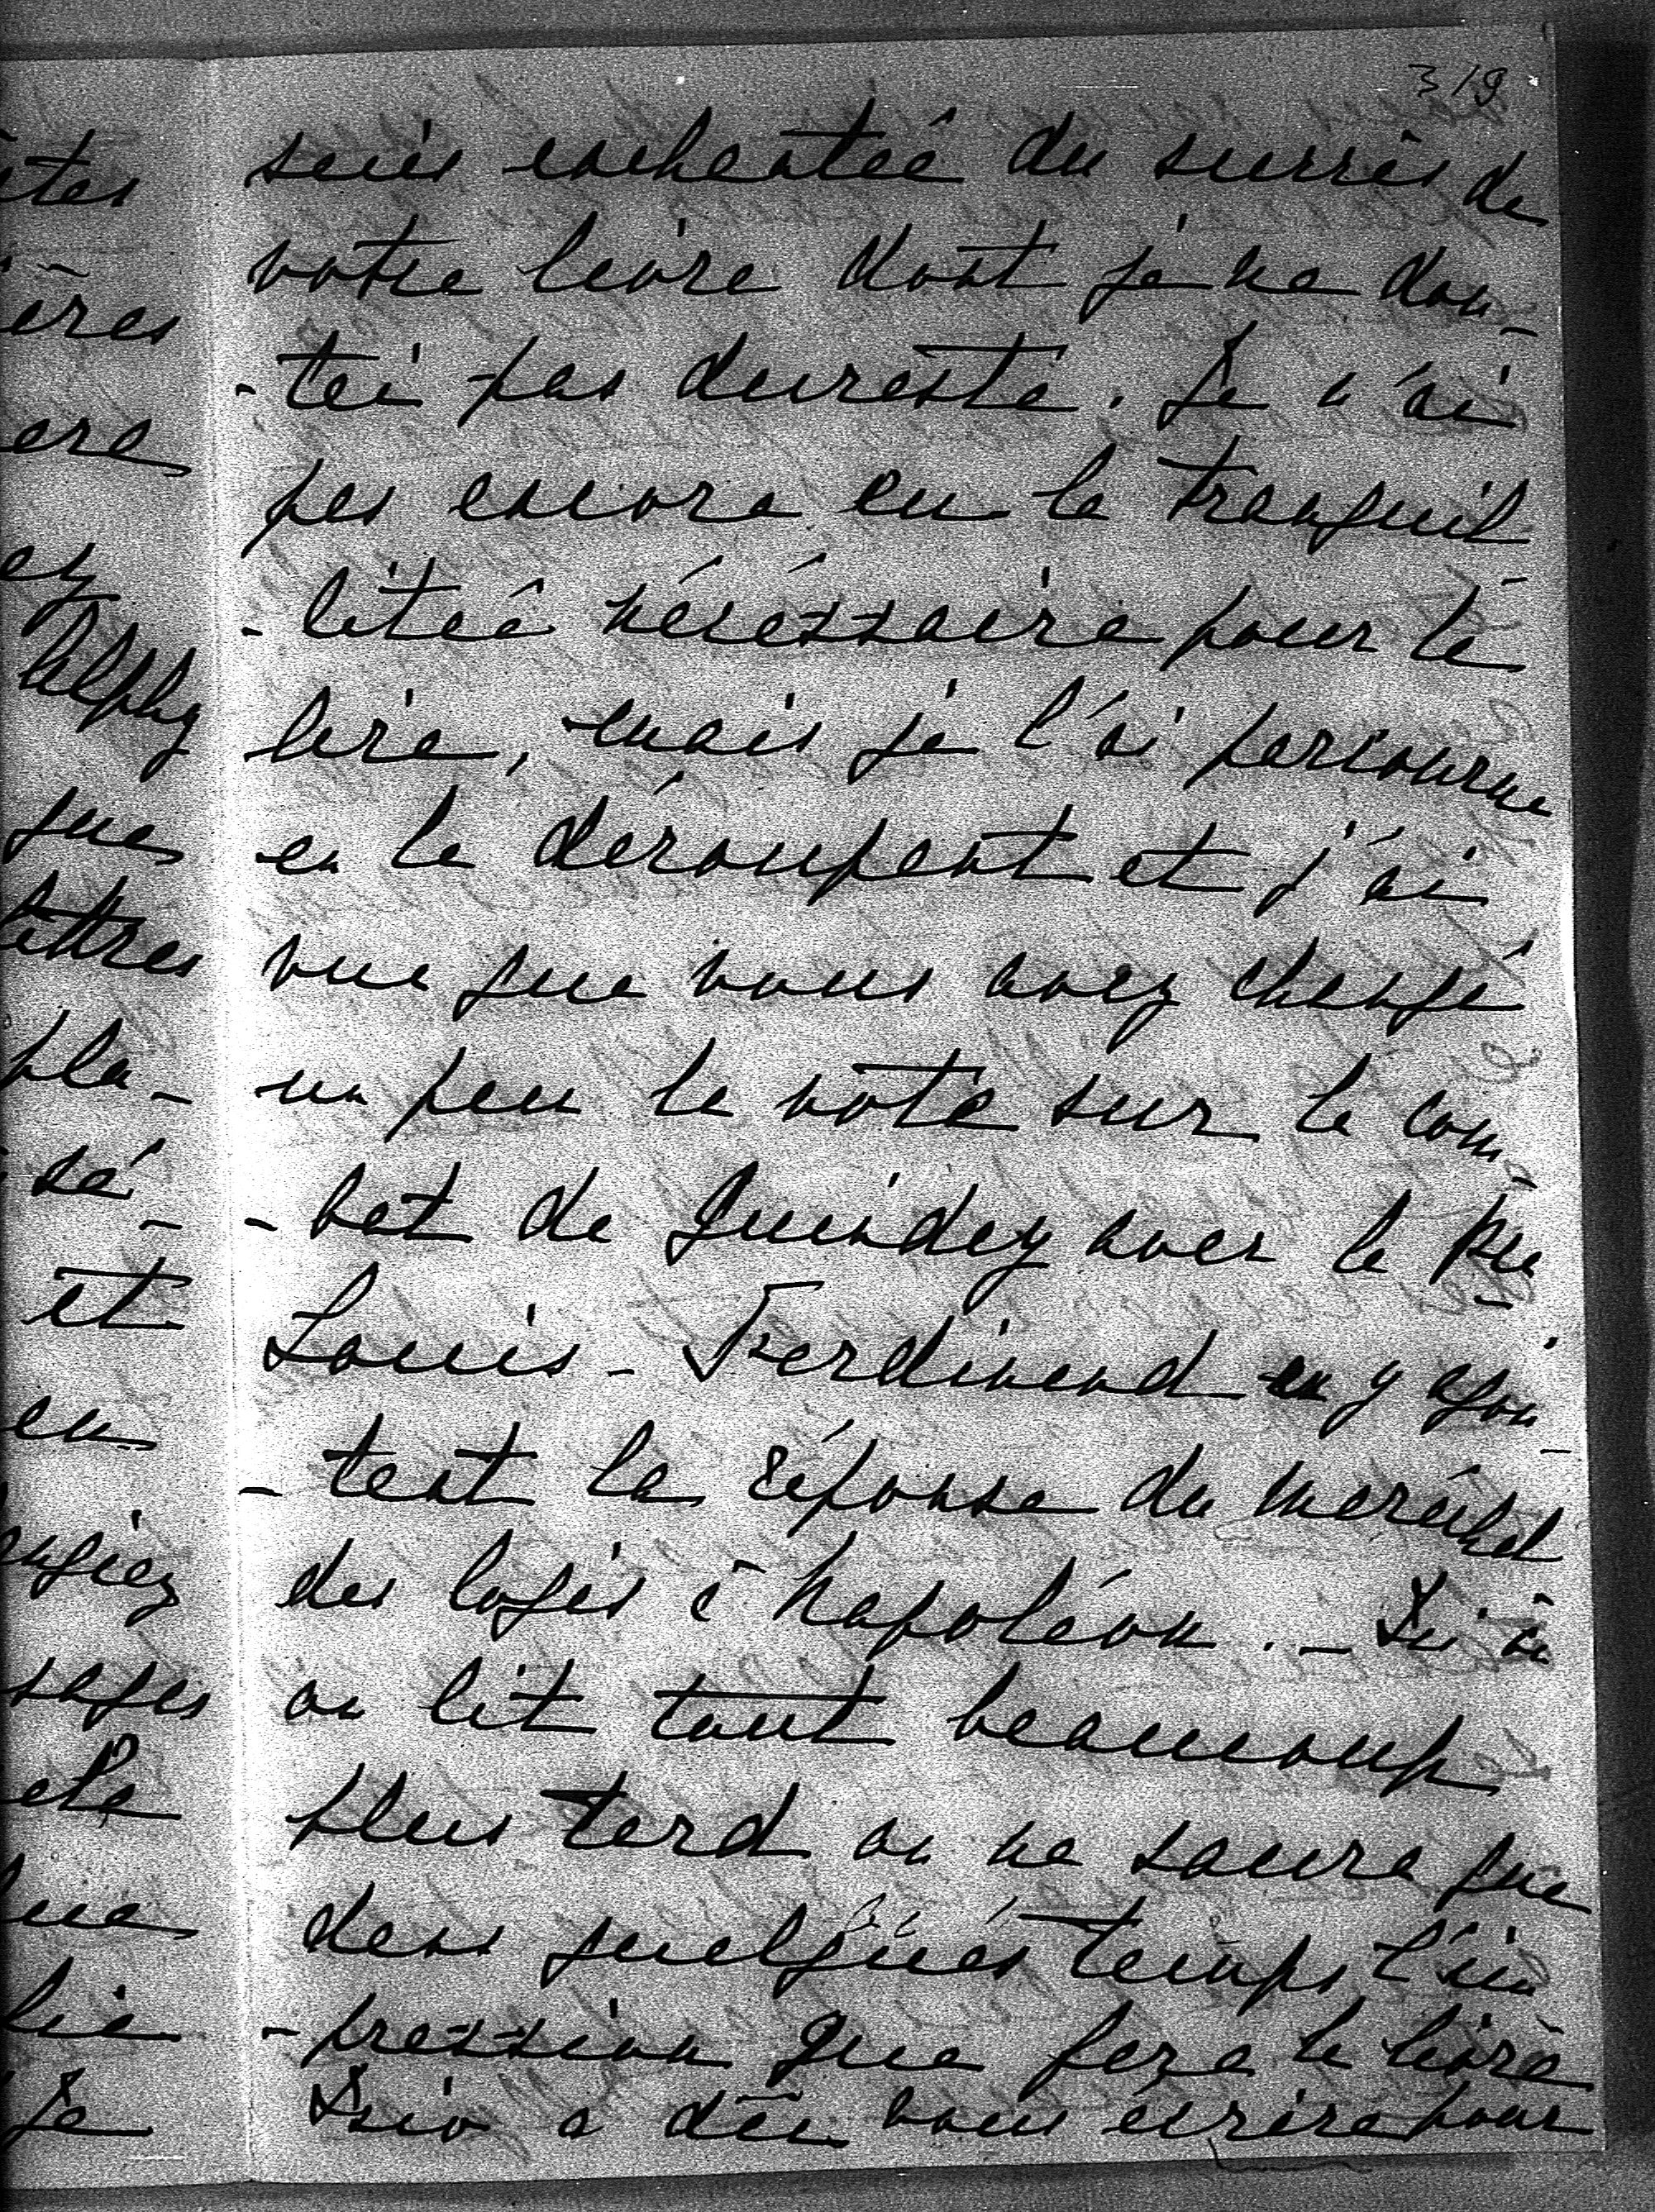 319
suis enchantée du succès de
votre livre dont je ne dou-
-tai pas dureste. Je n'ai
pas encore eu la tranquil
-litée nécéssaire pour le
lire, mais je l'ai parcourue
en le découpant et j'ai
vue que vous avez changé
un peu la note sur le com-
-bat de Guindey avec le Pce
Louis-Ferdinand en y ajou-
-tant la réponse du maréchal
des logis à Napoléon. - Ici où
on lit tout beaucoup
plus tard on ne saura que
dans quelques temps l'im
-pression que fera le livre
Sio a dû vous écrire pour
ites
ères
ere
ey
Alphy
que
lettres
pla-
sé-
et
en
sages
ela
lie
Je